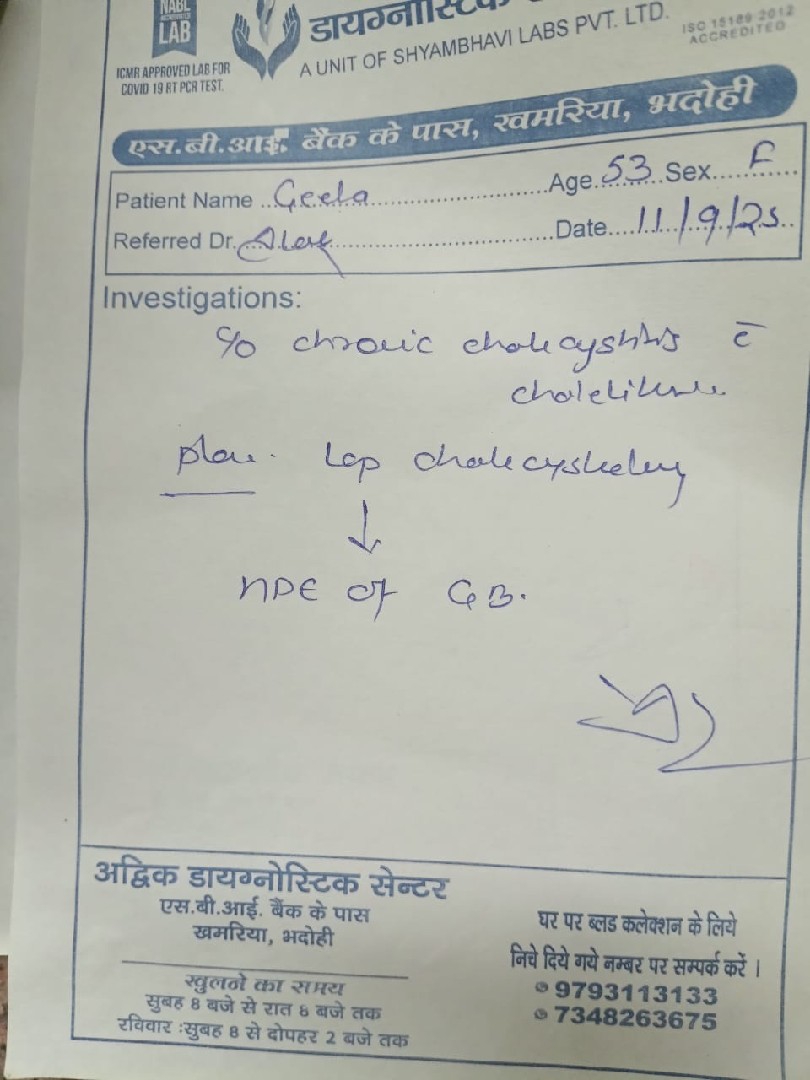 NABL
LAB
ICMR APPROVED LAB FOR
COVID 19 RT PCR TEST.
डायग्नोस्टिक
A UNIT OF SHYAMBHAVI LABS PVT. LTD.
ISO 15189 2012
ACCREDITED
एस.बी.आई. बैंक के पास, खमरिया, भदोही
Patient Name ..Geeta..........Age.53..Sex...F......
Referred Dr. ..........Date....11/9/25..
Investigations:
c/o chronic cholecystitis c̄
plan. Lap cholecystectomy
↓
HPE of GB.
अद्विक डायग्नोस्टिक सेन्टर
एस.बी.आई. बैंक के पास
खमरिया, भदोही
खुलने का समय
सुबह 8 बजे से रात 8 बजे तक
रविवार :सुबह 8 से दोपहर 2 बजे तक
घर पर ब्लड कलेक्शन के लिये
निचे दिये गये नम्बर पर सम्पर्क करें ।
9793113133
7348263675